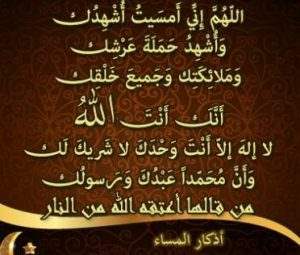 اللَّهُمَّ إِنِّي أَمسَيتُ أُشْهِدُك
وَأُشْهِدُ حَمَلَةَ عَرْشِك
وَمَلَائِكَتِك وَجَمِيعَ خَلْقِك
أَنَّكَ أَنْتَ اللهُ
لا إلهَ إلاّ أَنْتَ وَحْدَكَ لا شَريكَ لَك
وَأَنَّ مُحَمَّداً عَبْدُكَ وَرَسولُك
من قالها أعتقه الله من النار
أذكار المساء